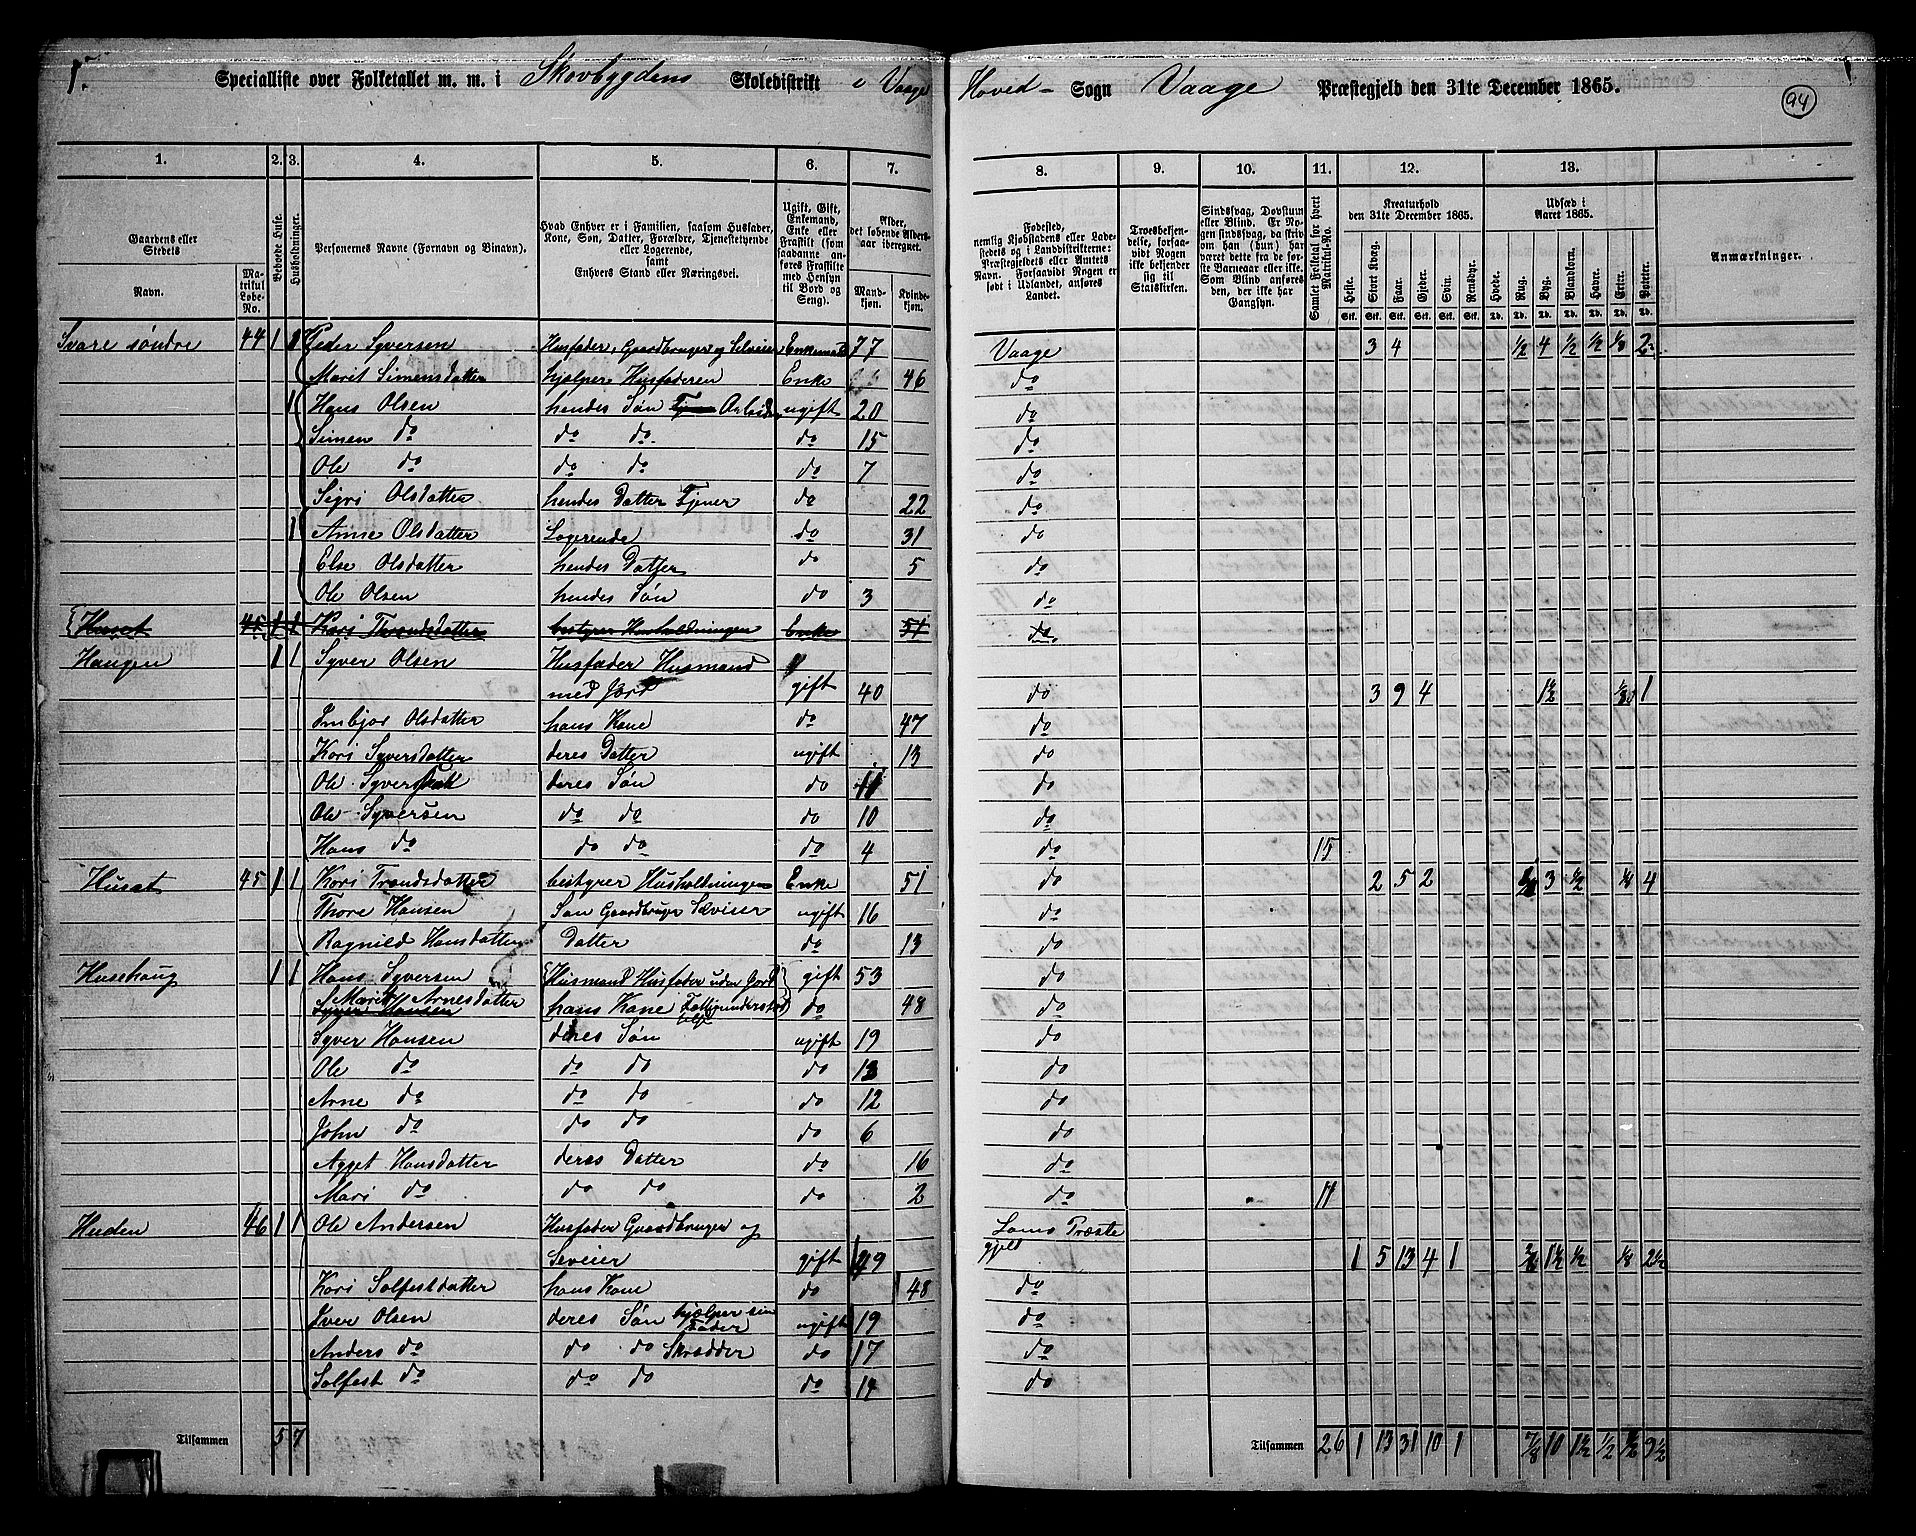 5. Specialliste over Folketallet m. m. i Skovbygdens Skoledistrikt i Vaage Hoved- Sogn Vaage Præstegjeld den 31te December 1865. 94
1. 2. 3. 4. 5. 6. 7. 8. 9. 10. 11. 12. 13.
Gaardens eller Stedets Navn. Matrikul Løbe-No. Beboede Huse. Husholdninger. Personernes Navne (Fornavn og Binavn). Hvad Enhver er i Familien, saasom Husfader, Kone, Søn, Datter, Forældre, Tjenestetyende eller Logerende, samt Enhvers Stand eller Næringsvei. Ugift, Gift, Enkemand, Enke eller Fraskilt (som saadanne anføres Fraskilte med Hensyn til Bord og Seng). Alder, det løbende Aldersaar iberegnet. Mandkjøn. Kvindekjøn.
Fødested, nemlig Kjøbstadens eller Ladestedets eller i Landdistrikterne: Præstegjeldets eller Amtets Navn. Forsaavidt Nogen er født i Udlandet, anføres Landet. Troesbekjendelse, forsaavidt Nogen ikke bekjender sig til Statskirken. Sindssvag, Døvstum eller Blind. Er Nogen sindssvag, da Opskrivning om han (hun) har været dette fra de første Barneaar eller ikke. Som Blind anføres den, der ikke har Gangsyn. Samlet Folketal for hvert Matrikul-No. Kreaturhold den 31te December 1865. Heste. Stort Kvæg. Faar. Gjeder. Svin. Rensdyr. Udsæd i Aaret 1865. Hvede. Rug. Byg. Blandkorn. Havre. Erter. Poteter. Anmærkninger.
Svare søndre 44 1 1 Peder Syversen Husfader, Gaardbruger og Selveier Enkemand 77 Vaage 3 4 1/2 4 1/2 1/2 1/8 2
Marit Simensdatter hjælper Husfaderen Enke 46 do
1 Hans Olsen hendes Søn ugift 20 do
Simen do do do do 15 do
Ole do do do do 7 do
Sigri Olsdatter hendes Datter Tjener do 22 do
1 Anne Olsdatter Logerende do 31 do
Else Olsdatter hendes Datter do 5 do
Ole Olsen hendes Søn do 3 do
Huset 45 1 1 Kari Trondsdatter bestyrer Husholdningen Enke 51 do
Haugen 1 1 Syver Olsen Husfader Husmand
med Jord gift 40 do 3 9 4 1 1/2 1
Imbjør Olsdatter hans Kone do 47 do
Kari Syversdatter deres Datter ugift 13 do
Ole Syversen deres Søn do 11 do
Ole Syversen do do do 10 do
Hans do do do do 4 do 15
Huset 45 1 1 Kari Trondsdatter bestyrer Husholdningen Enke 51 do 2 5 2 3 1/2 1/8 4
Thore Hansen Søn Gaardbruger Selveier ugift 16 do
Ragnild Hansdatter Datter do 13 do
Husehaug 1 1 Hans Syversen Husmand Husfader uden Jord gift 53 do
Marit Arnesdatter hans Kone Fattigunderstøttelse do 48 do
Syver Hansen
Syver Hansen deres Søn ugift 19 do
Ole do do do do 13 do
Arne do do do do 12 do
John do do do do 6 do
Agget Hansdatter deres Datter do 16 do
Mari do do do do 2 do 11
Huden 46 1 1 Ole Andersen Husfader Gaardbruger og Loms Præste
Seveier gift 49 gjeld 1 5 13 4 1 1 1/2 1/2 1/8 2 1/2
Kari Solfestdatter hans Kone do 48 do
Iver Olsen deres Søn hjælper sin Fader ugift 19 do
Anders do do do Skrædder do 17 do
Solfest do do do do 14 do
Tilsammen 5 7 Tilsammen 26 1 13 31 10 1 7/8 10 1 1/2 1/2 9 1/2